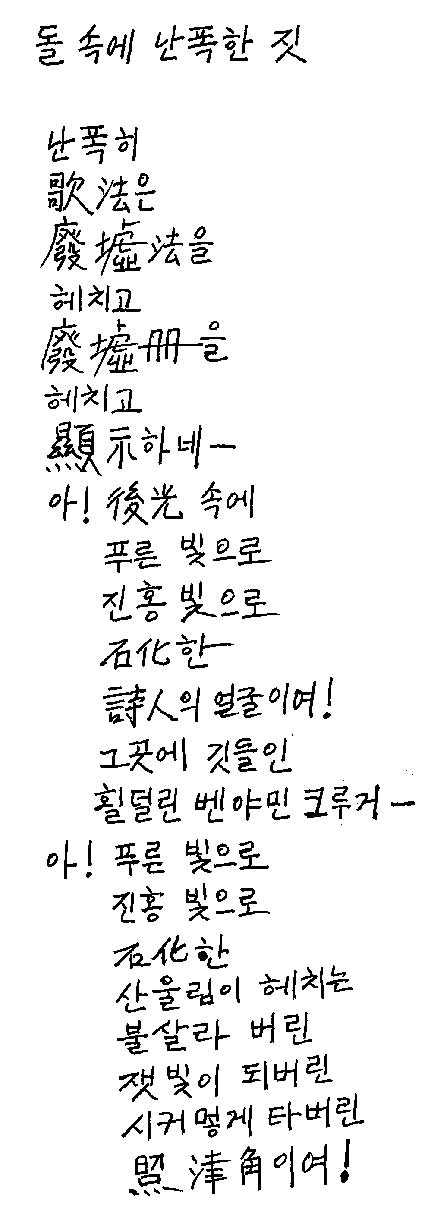 돌 속에 난폭한 짓
난폭히
歌法은
廢墟法을
헤치고
廢墟冊을
헤치고
顯示하네ー
아! 後光 속에
푸른 빛으로
진홍 빛으로
石化한ー
詩人의 얼굴이여!
그곳에 깃들인
횔덜린 벤야민 크루거ー
아! 푸른 빛으로
진홍 빛으로
石化한
산울림이 헤치는
불살라 버린
잿빛이 되버린
시커멓게 타버린
照津角이여!